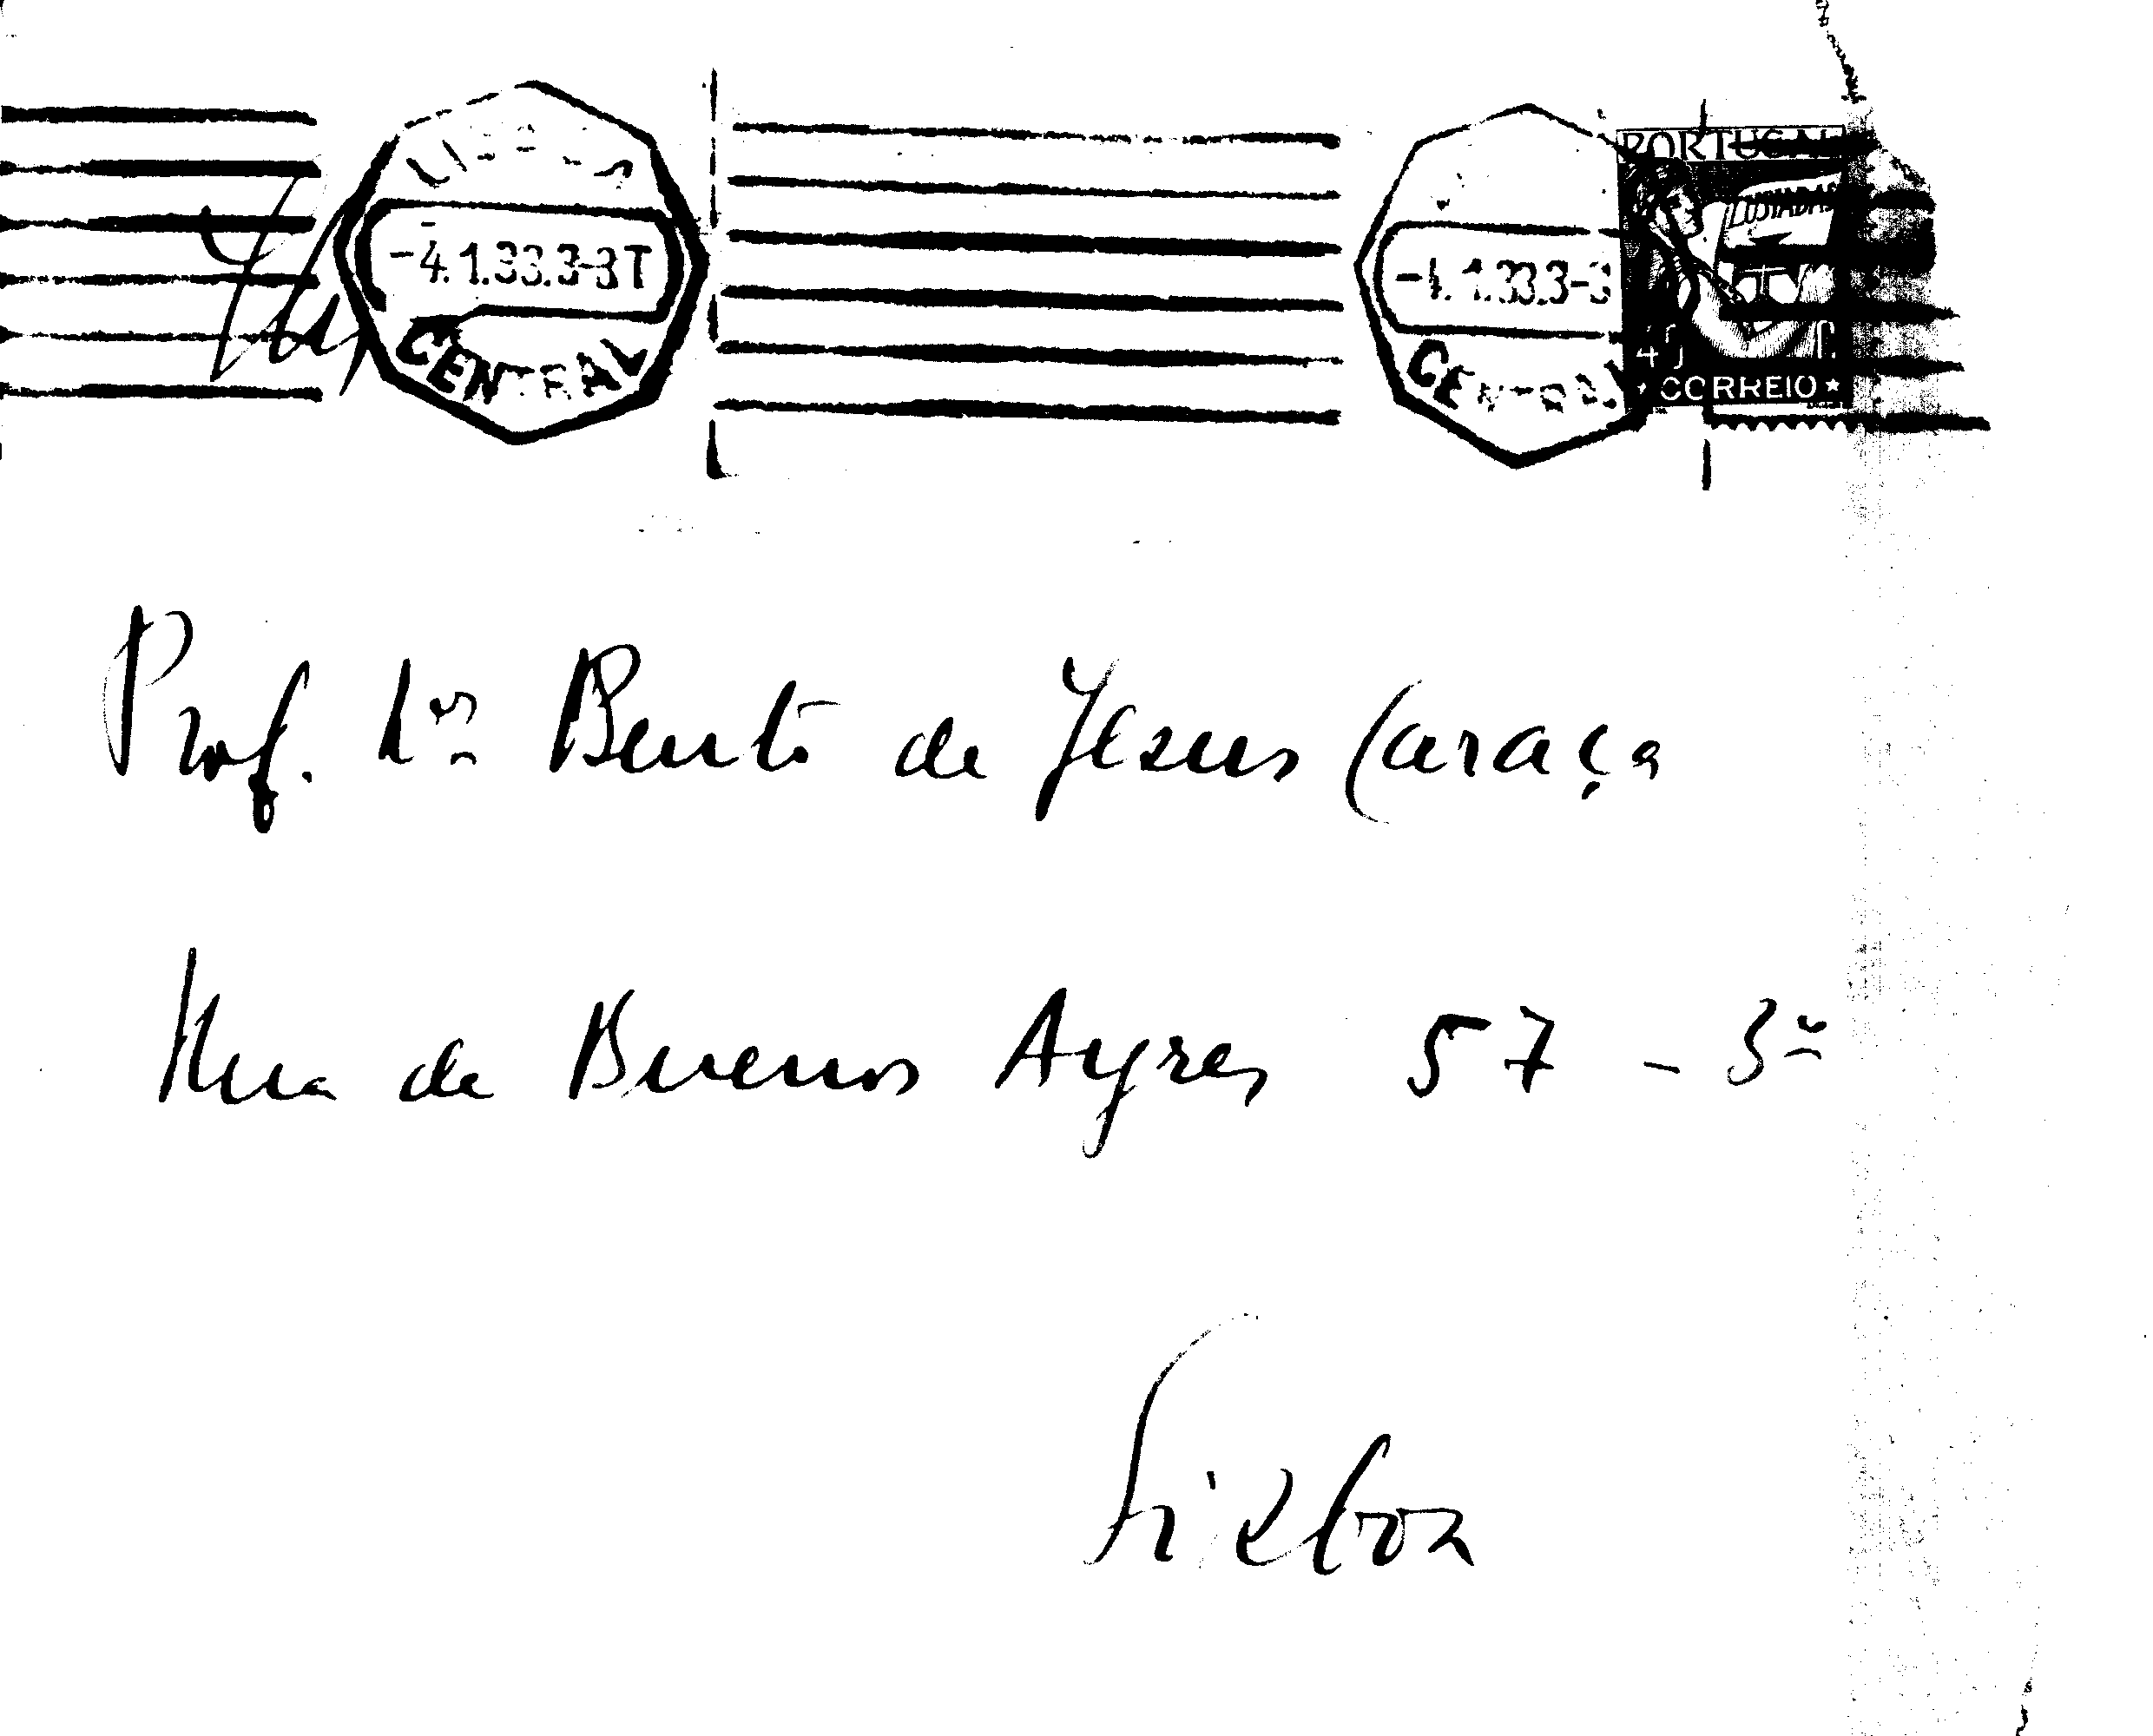 -4.1.33.3-3T
CENTRAL
-4.1.33.3-3
CENTRAL
PORTUGAL
LUSIADAS
CORREIO
Prof. Dor Bento de Jesus Caraça
Rua de Buenos Ayres 57 - 3º
Lisboa